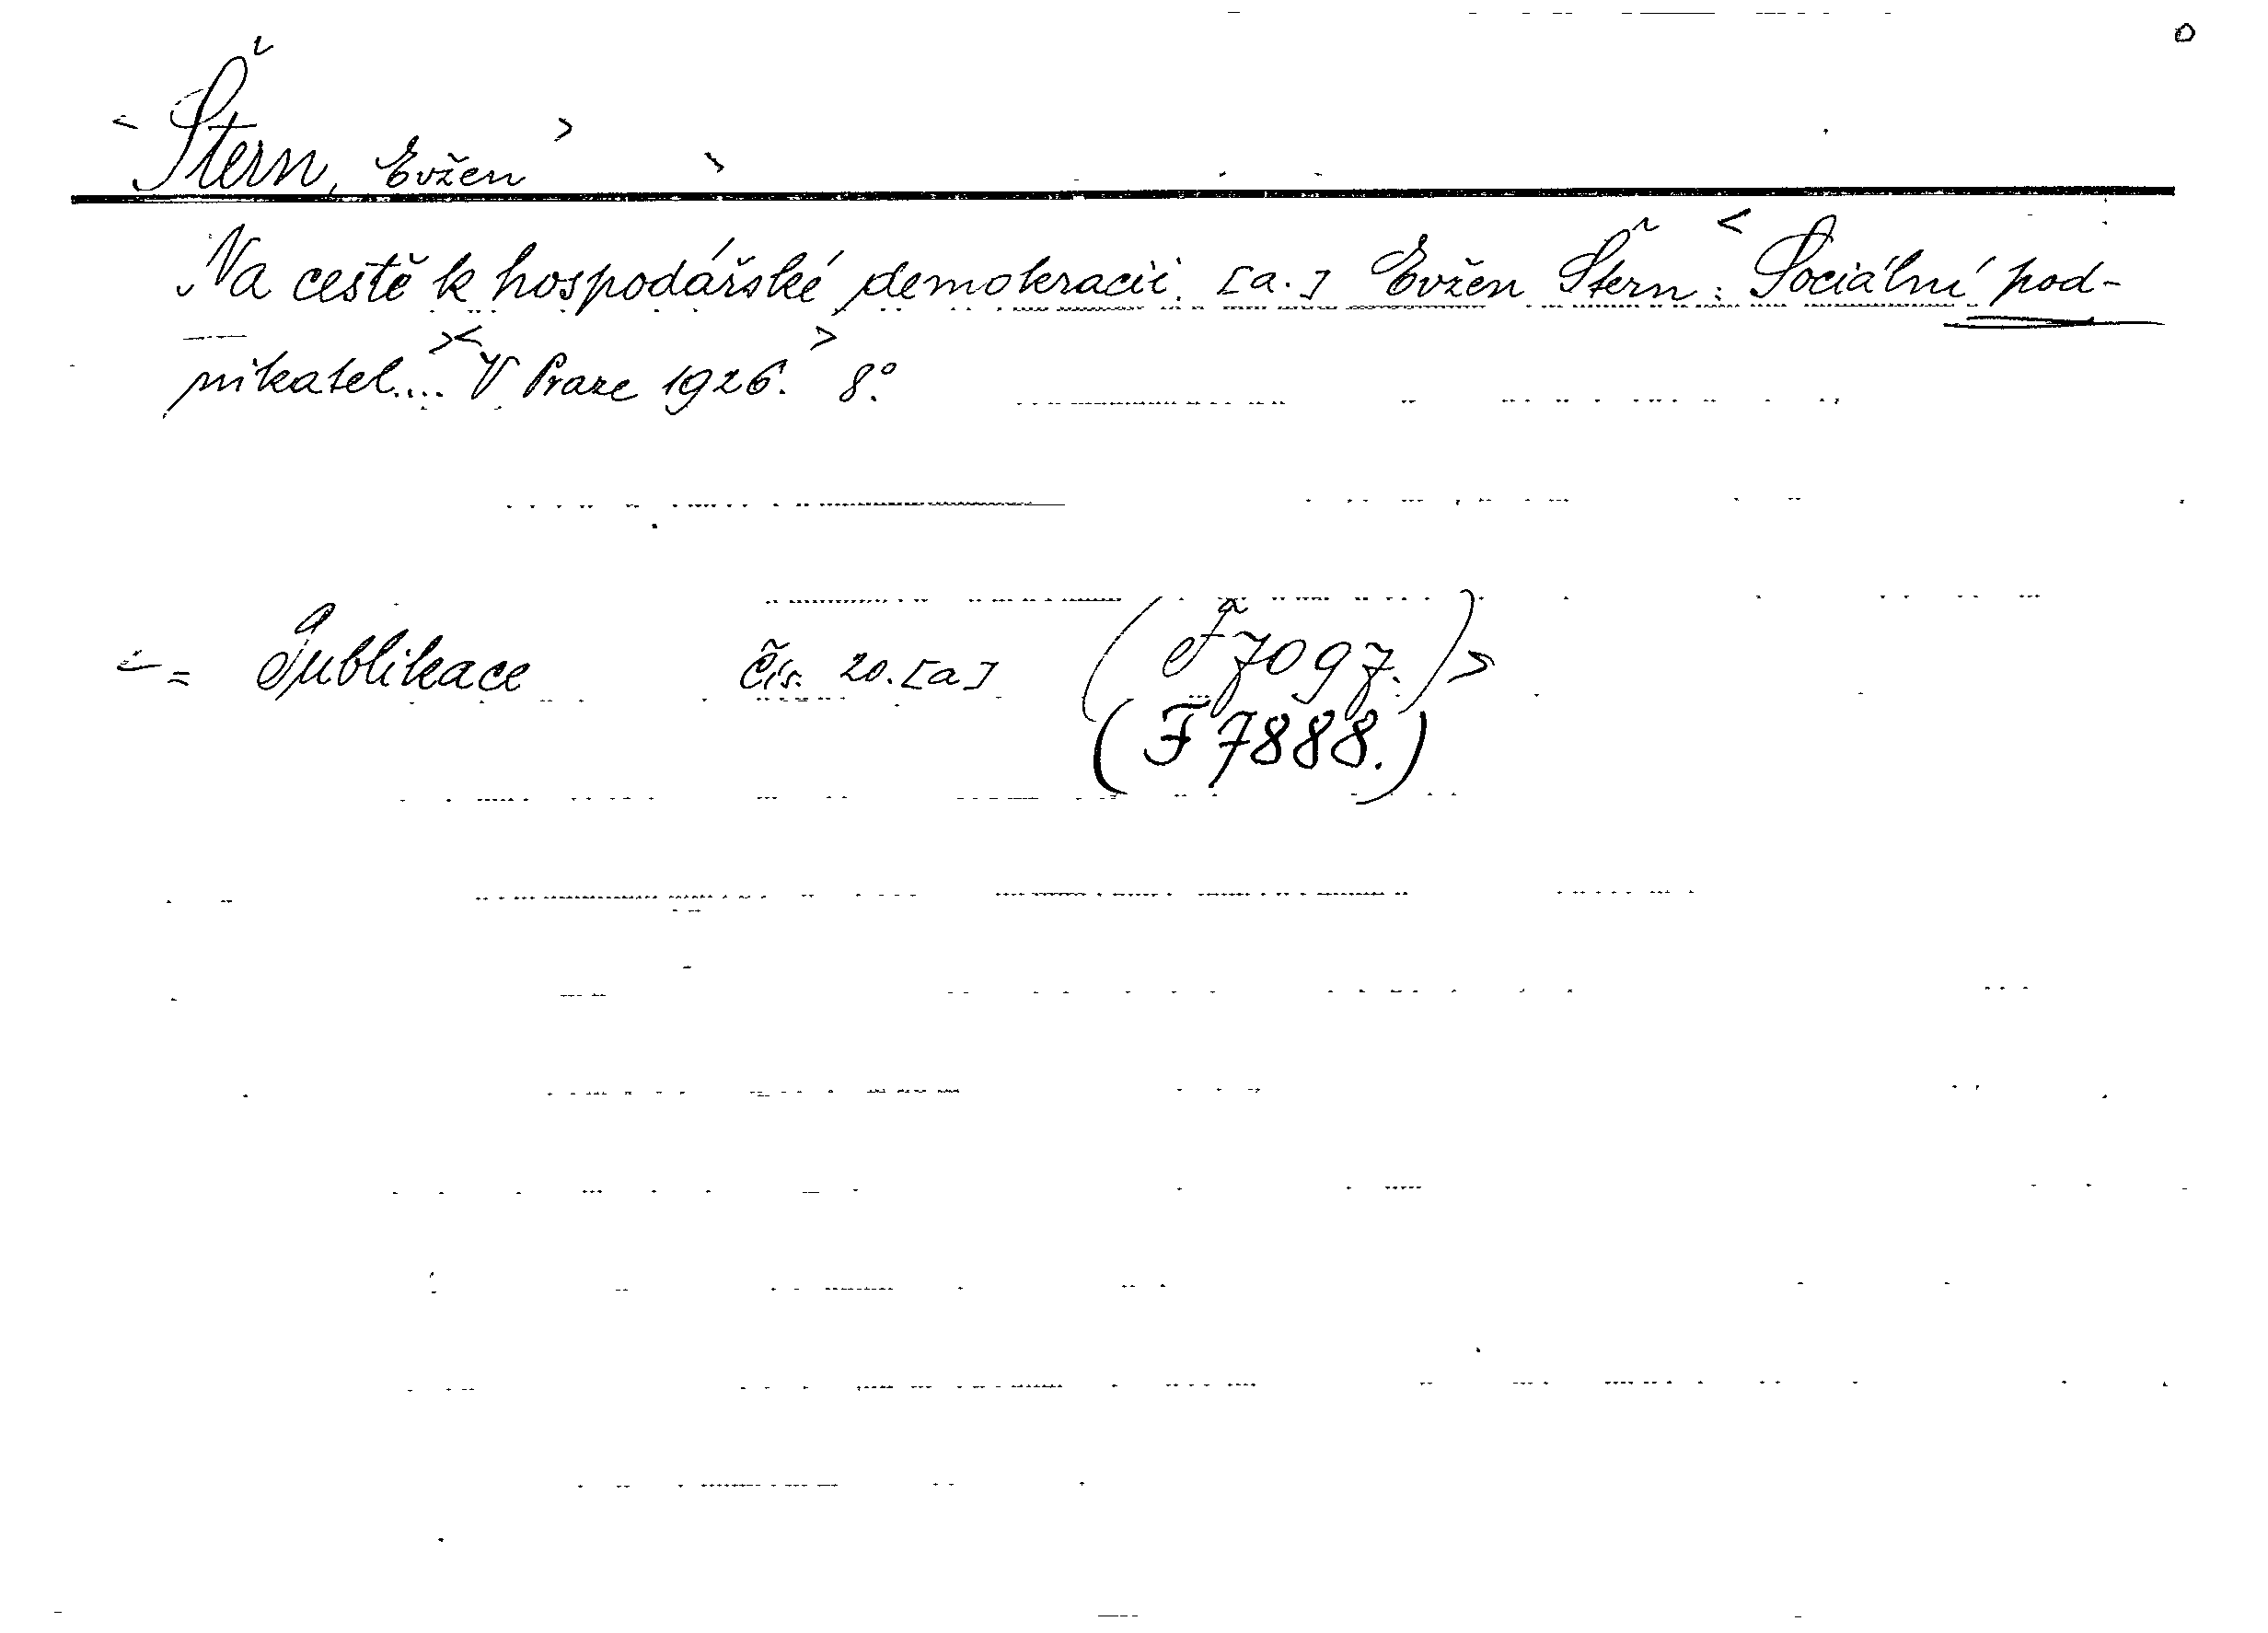 < Štern, Evžen >
Na cestě k hospodářské demokracii. [a.] Evžen Štern: < Sociální pod-
nikatel.... >< V Praze 1926. > 8°.
< = Publikace čís. 20. [a] (F 7097.) >
(F 7888.)